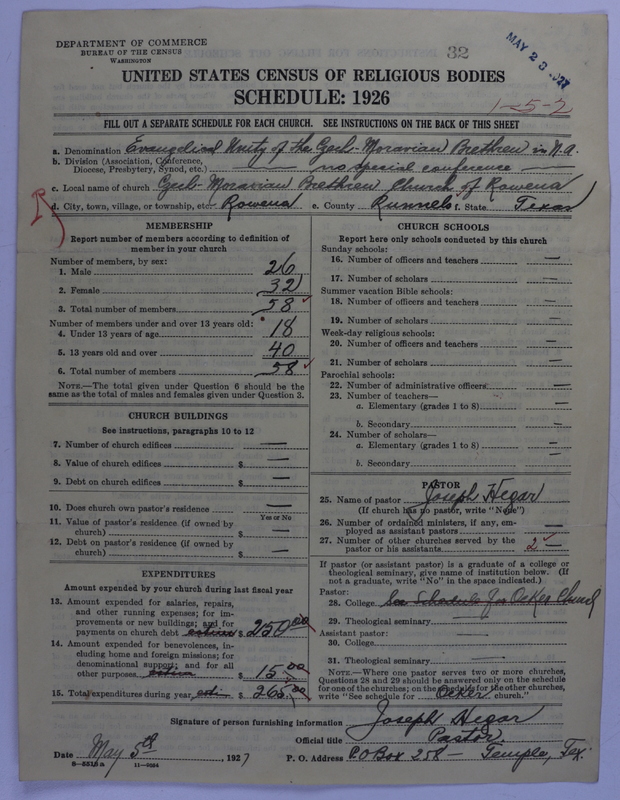 DEPARTMENT OF COMMERCE
BUREAU OF THE CENSUS
WASHINGTON
32
MAY 23 1927
UNITED STATES CENSUS OF RELIGIOUS BODIES
SCHEDULE: 1926
1-5-2
FILL OUT A SEPARATE SCHEDULE FOR EACH CHURCH. SEE INSTRUCTIONS ON THE BACK OF THIS SHEET
a. Denomination Evangelical Unity of the Czech-Moravian Brethren in N.A.
b. Division (Association, Conference,
Diocese, Presbytery, Synod, etc.) — no special conference —
c. Local name of church Czech-Moravian Brethren Church of Rowena
d. City, town, village, or township, etc. Rowena e. County Runnels f. State Texas
MEMBERSHIP
Report number of members according to definition of
member in your church
Number of members, by sex:
1. Male 26
2. Female 32
3. Total number of members 58
Number of members under and over 13 years old:
4. Under 13 years of age 18
5. 13 years old and over 40
6. Total number of members 58
NOTE.—The total given under Question 6 should be the
same as the total of males and females given under Question 3.
CHURCH BUILDINGS
See instructions, paragraphs 10 to 12
7. Number of church edifices —
8. Value of church edifices $ —
9. Debt on church edifices $ —
10. Does church own pastor's residence —
Yes or No
11. Value of pastor's residence (if owned by
church) $ —
12. Debt on pastor's residence (if owned by
church) $ —
EXPENDITURES
Amount expended by your church during last fiscal year
13. Amount expended for salaries, repairs,
and other running expenses; for im-
provements or new buildings; and for
payments on church debt $ 250.00
14. Amount expended for benevolences, in-
cluding home and foreign missions; for
denominational support; and for all
other purposes $ 15.00
15. Total expenditures during year $ 265.00
CHURCH SCHOOLS
Report here only schools conducted by this church
Sunday schools:
16. Number of officers and teachers —
17. Number of scholars —
Summer vacation Bible schools:
18. Number of officers and teachers —
19. Number of scholars —
Week-day religious schools:
20. Number of officers and teachers —
21. Number of scholars —
Parochial schools:
22. Number of administrative officers —
23. Number of teachers—
a. Elementary (grades 1 to 8) —
b. Secondary —
24. Number of scholars—
a. Elementary (grades 1 to 8) —
b. Secondary —
PASTOR
25. Name of pastor Joseph Hegar
(If church has no pastor, write "None")
26. Number of ordained ministers, if any, em-
ployed as assistant pastors —
27. Number of other churches served by the
pastor or his assistants 2 —
If pastor (or assistant pastor) is a graduate of a college or
theological seminary, give name of institution below. (If
not a graduate, write "No" in the space indicated.)
Pastor:
28. College See Schedule for Ocker Church
29. Theological seminary —
Assistant pastor:
30. College
31. Theological seminary —
NOTE.—Where one pastor serves two or more churches,
Questions 28 and 29 should be answered only on the schedule
for one of the churches; on the schedule for the other churches,
write "See schedule for Ocker church."
Signature of person furnishing information Joseph Hegar
Official title Pastor
Date May 5th, 1927 P. O. Address P.O Box 258 — Temple, Tex.
8-5518a 11-9064